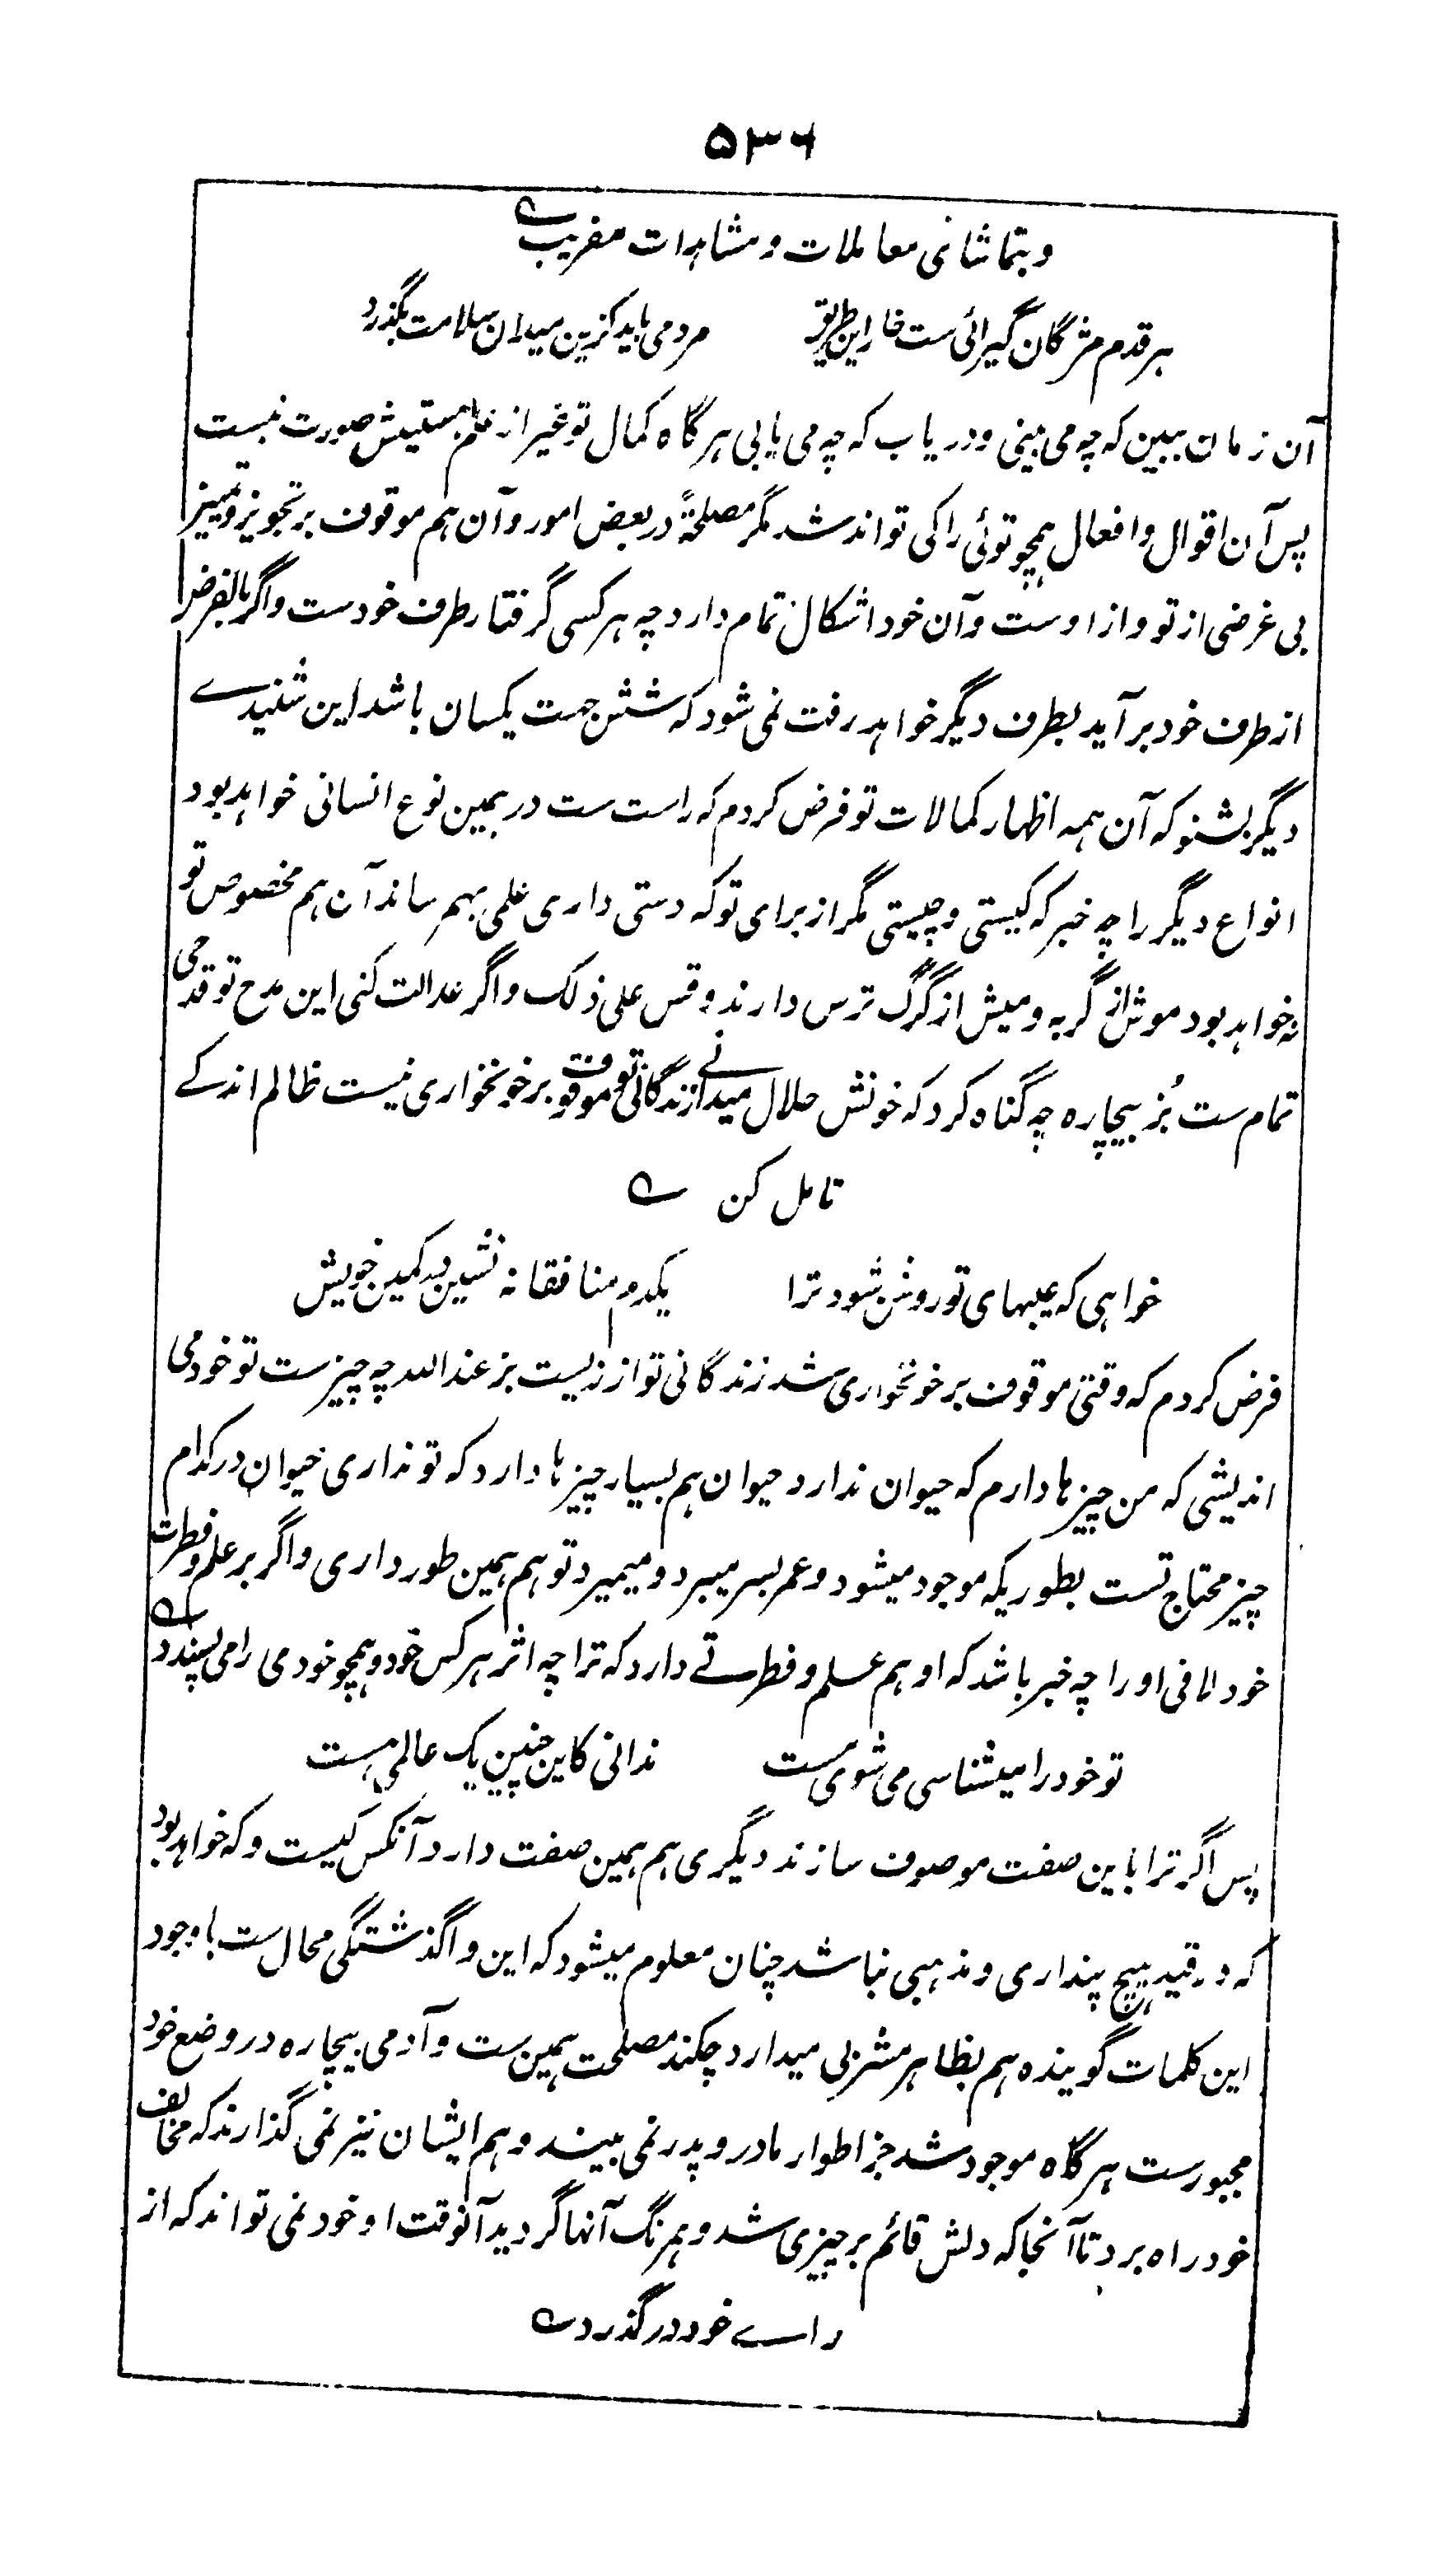 ۵۳۶
و بتماشائی معاملات و مشاهدات مفریبے
هر قدم مژگان گیرائی ست خار این طریق
مردمی باید کزین میدان سلامت بگذرد
آن زمان ببین که چه می بینی و دریاب که چه می یابی هرگاه کمال تو غیر از ظلم صورت نبست
پس آن اقوال و افعال همچو توئی را کی تواند شد مگر مصلحةً در بعض امور و آن هم موقوف بر تجویز و تمییز
بی غرضی از تو و از اوست و آن خود اشکال تمام دارد چه هر کسی گرفتار طرف خودست و اگر بالفرض
از طرف خود برآید بطرف دیگر خواهد رفت نمی شود که شش جهت یکسان باشد این شنیدے
دیگر بشنو که آن همه اظهار کمالات تو فرض کردم که راست ست در همین نوع انسانی خواهد بود
انواع دیگر را چه خبر که کیستی و چیستی مگر از برای تو که دستی داری علمی بهم رساند آن هم مخصوص تو
نخواهد بود موش از گربه و میش از گرگ ترس دارند و قس علی ذلک و اگر عدالت کنی این مدح تو قدحی
تمام ست بُز بیچاره چه گناه کرد که خونش حلال میدانے زندگانی تو موقوف بر خونخواری نیست ظالم اندکے
تامل کن ے
خواهی که عیبهای تو روشن شود ترا
یکدم منافقانه نشین در کمین خویش
فرض کردم که وقتی موقوف بر خونخواری شد زندگانی تو از زیست بز عند الله چه چیزست تو خود می
اندیشی که من چیزها دارم که حیوان ندارد حیوان هم بسیار چیزها دارد که تو نداری حیوان در کدام
چیز محتاج تست بطوریکه موجود میشود و عمر بسر میبرد و میمیرد تو هم همین طور داری و اگر بر علم و فطرت
خود لافی او را چه خبر باشد که او هم علم و فطرتے دارد که ترا چه اثر هر کس خود و همچو خودمی را می پسندد ے
تو خود را میشناسی می شوی مست
ندانی کاین چنین یک عالمی هست
پس اگر ترا باین صفت موصوف سازند دیگری هم همین صفت دارد آنکس کیست و که خواهد بود
که در قید هیچ پنداری و مذهبی نباشد چنان معلوم میشود که این واگذشتگی محال ست با وجود
این کلمات گوینده هم بظاهر مشربی میدارد چکند مصلحت همین ست و آدمی بیچاره در وضع خود
مجبورست هرگاه موجود شد جز اطوار مادر و پدر نمی بیند و هم ایشان نیز نمی گذارند که مخالف
خود راه برد تا آنجا که دلش قائم بر چیزی شد و همرنگ آنها گردید آنوقت او خود نمی تواند که از
راے خود در گذرد ے